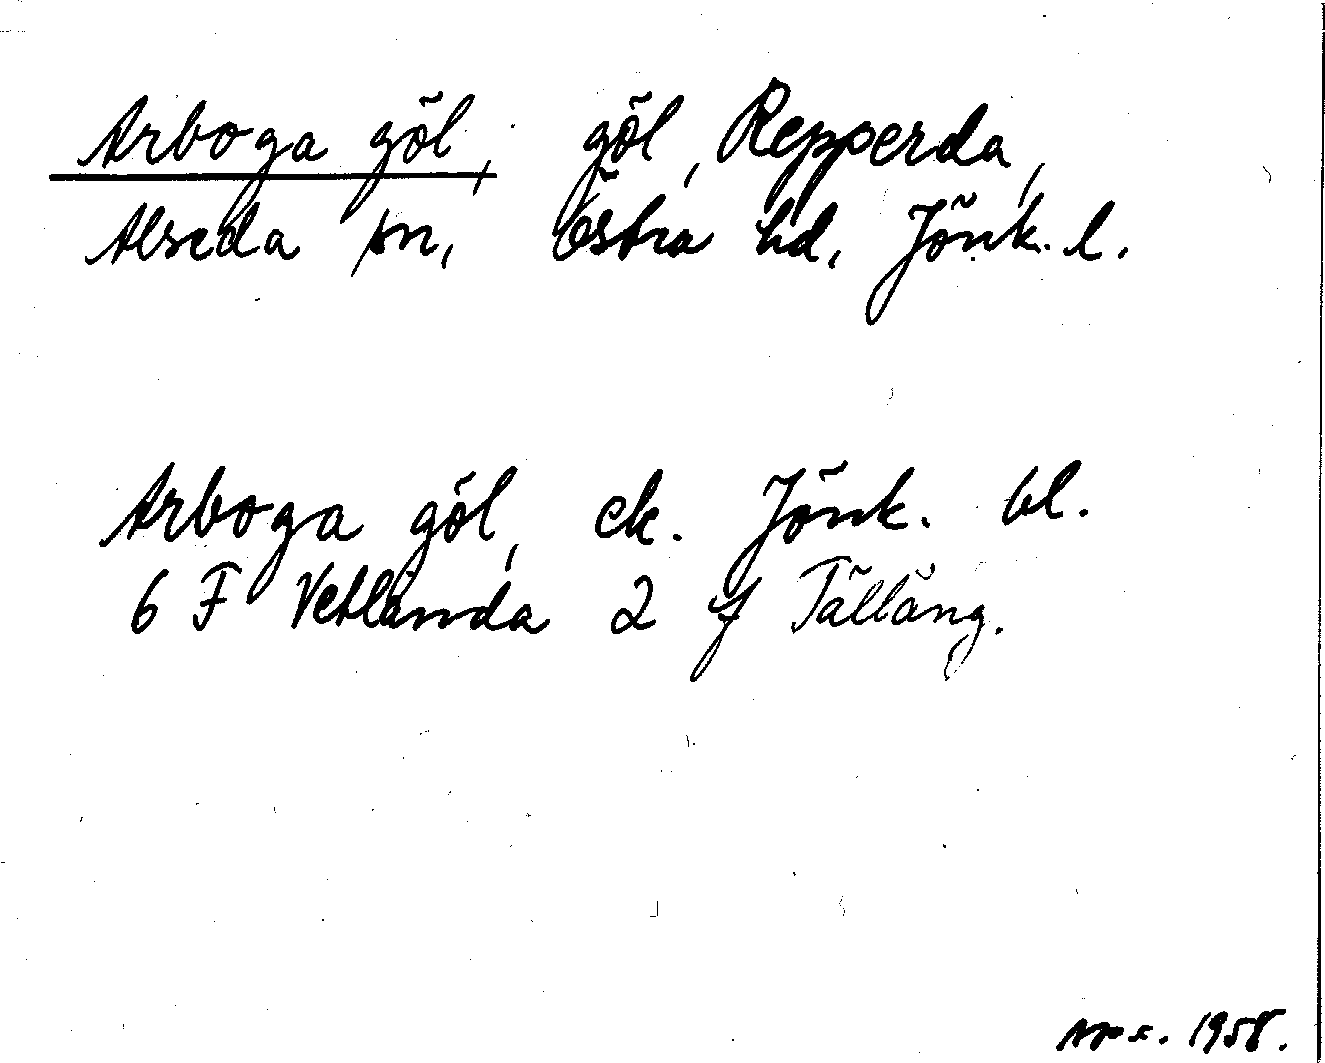 Arboga göl, göl, Repperda,
Alseda sn, Östra hd, Jönk. l.
Arboga göl, ek. Jönk. bl.
6 F Vetlanda 2 f Tälläng.
1958.